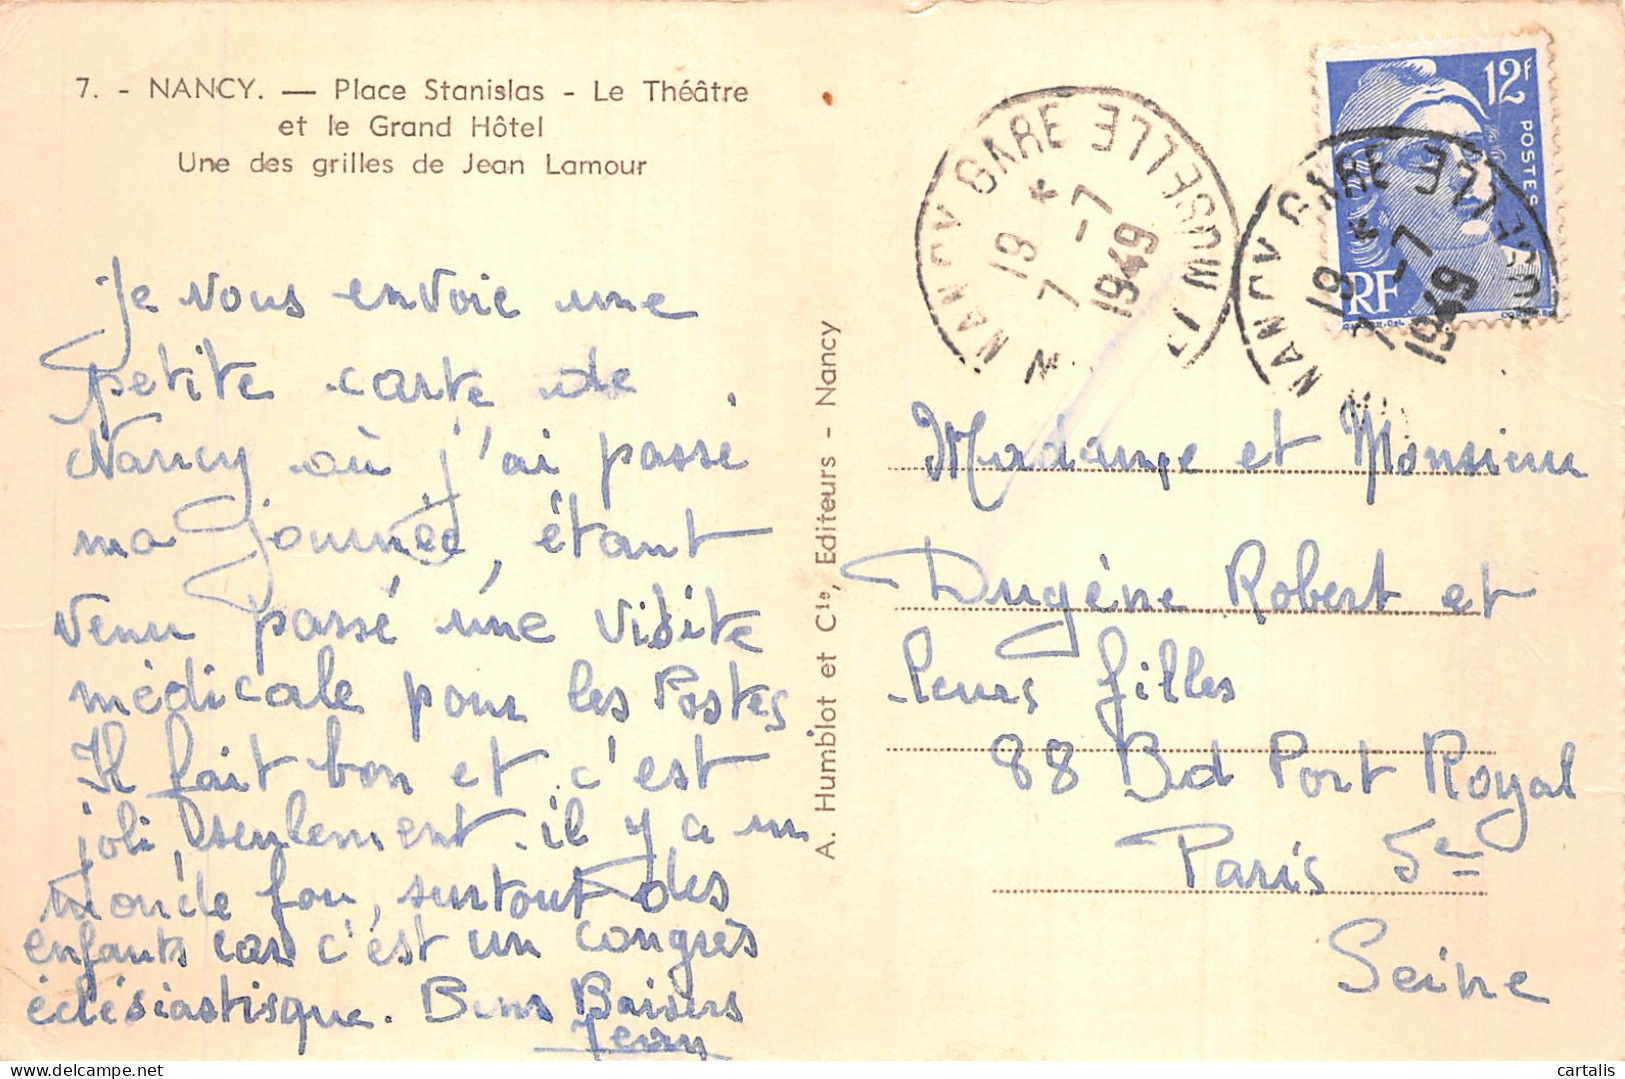 7. - NANCY. — Place Stanislas - Le Théâtre
et le Grand Hôtel
Une des grilles de Jean Lamour
Je vous envoie une
petite carte de
Nancy où j'ai passé
ma journée, étant
venu passé une visite
médicale pour les Postes
Il fait bon et c'est
joli, seulement il y a un
monde fou, surtout des
enfants car c'est un congrès
éclésiastisque. Bons Baisers
A. Humblot et Cie, Editeurs - Nancy
NANCY GARE
19 *
7 - 7
1949
12F
POSTES
RF
NANCY GARE
19 *
7 - 7
1949
Madame et Monsieur
Dugéne Robert et
leurs filles
88 Bd Port Royal
Paris 5e
Seine
cartalis